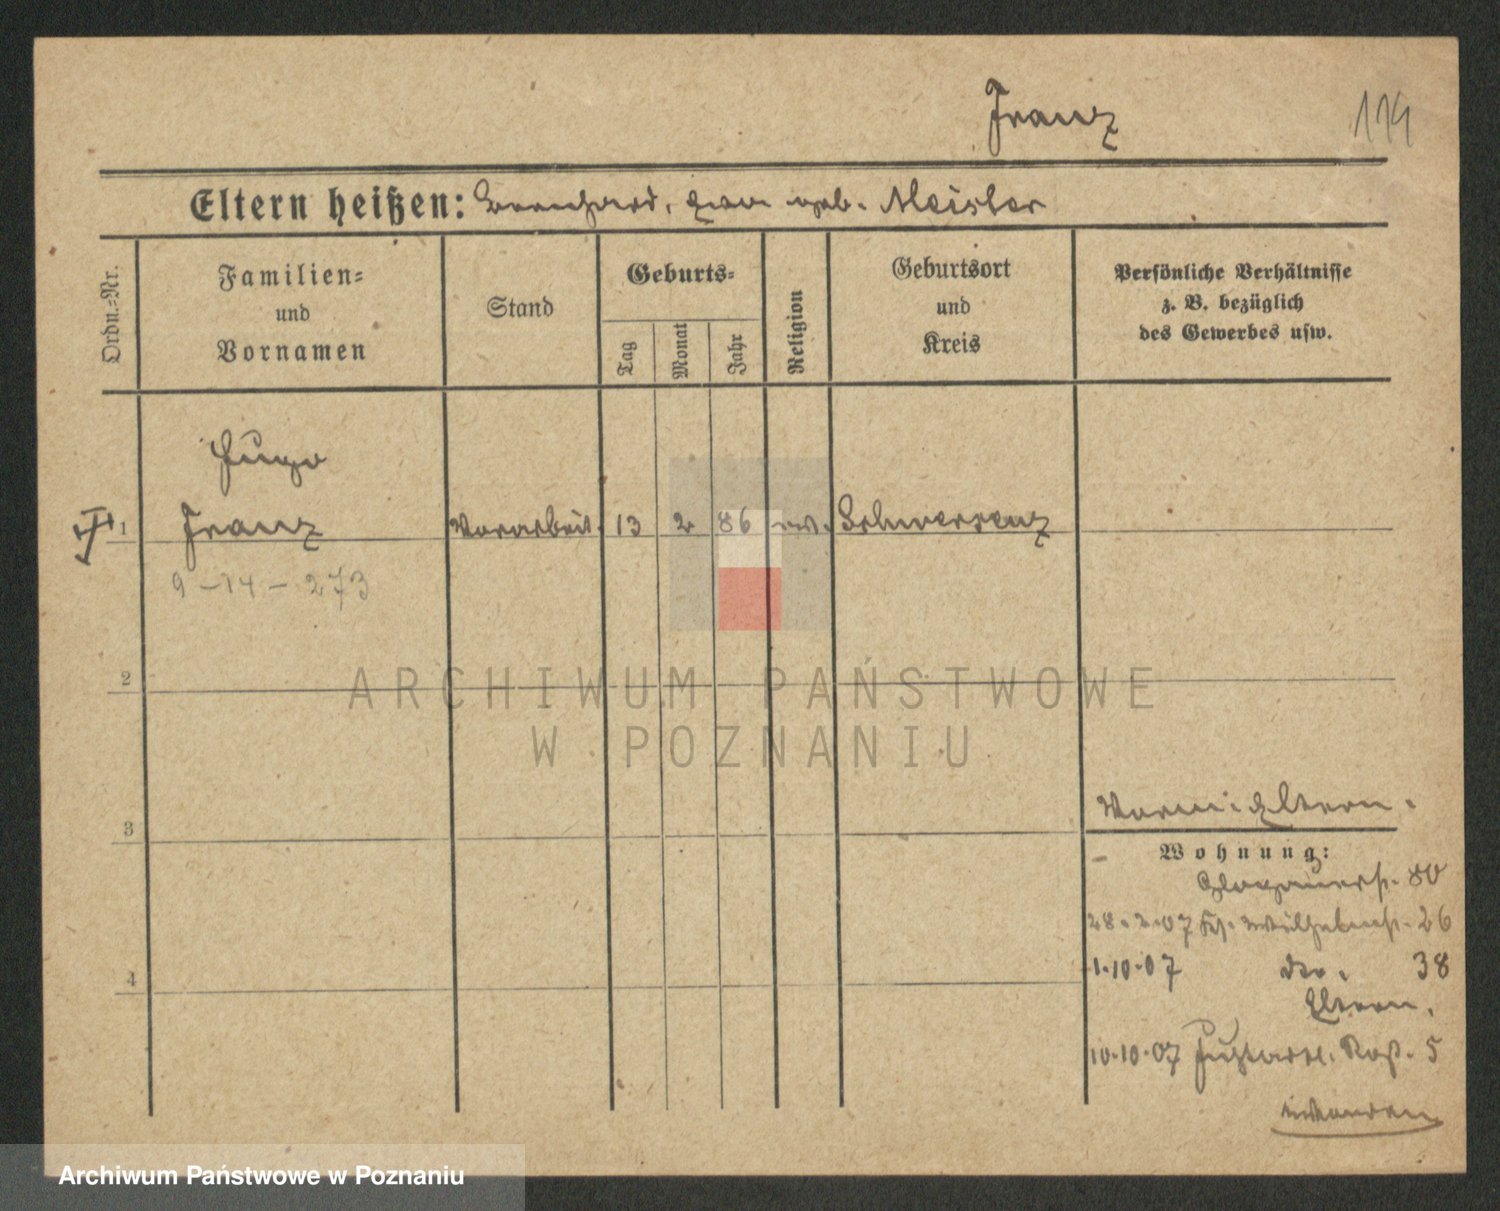 Franz
114
Eltern heißen: Bernhard, Eva geb. Meister
Ordn.-Nr.
Familien-
und
Vornamen
Stand
Geburts-
Tag
Monat
Jahr
Religion
Geburtsort
und
Kreis
Persönliche Verhältnisse
z. B. bezüglich
des Gewerbes usw.
Hugo
1 Franz Vorarbeit. 13 2 86 ev. Schwersenz
9-14-273
2
3
4
Eltern.
Wohnung:
Glogauerstr. 80
28.2.07 Kr. Wilhelmstr. 26
1.10.07 do. 38
Eltern.
10.10.07 5
wenden
ARCHIWUM PAŃSTWOWE
W POZNANIU
Archiwum Państwowe w Poznaniu